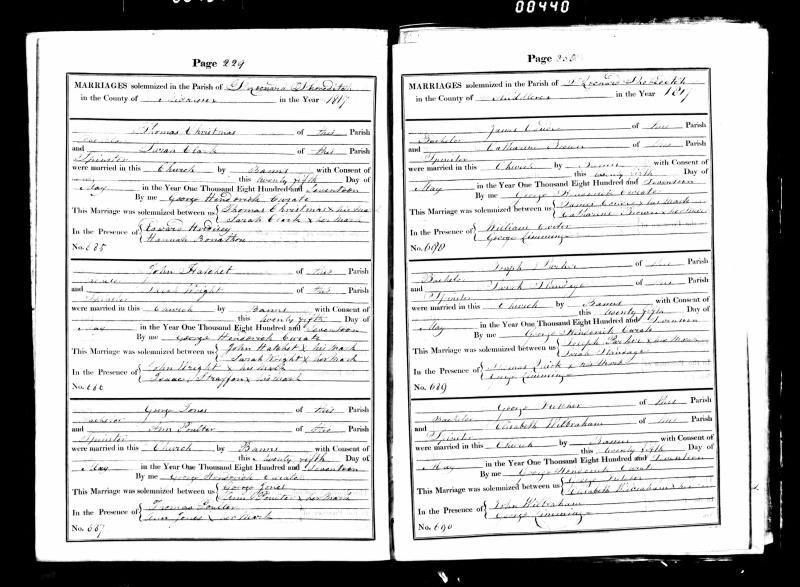 00440
Page 229
MARRIAGES solemnized in the Parish of St Leonard Shoreditch
in the County of Middlesex in the Year 1817
Thomas Christmas of this Parish
and Sarah Clark of this Parish
Spinster
were married in this Church by Banns with Consent of
this twenty fifth Day of
May in the Year One Thousand Eight Hundred and Seventeen
By me George Hendorick Curate
This Marriage was solemnized between us Thomas Christmas x his Mark
Sarah Clark x her Mark
In the Presence of Edward
Hannah
No. 685
John Hatchet of this Parish
and Sarah Wright of this Parish
Spinster
were married in this Church by Banns with Consent of
this twenty fifth Day of
May in the Year One Thousand Eight Hundred and Seventeen
By me George Hendorick Curate
This Marriage was solemnized between us John Hatchet x his Mark
Sarah Wright x her Mark
In the Presence of John Wright x his Mark
Isaac x his Mark
No. 686
George Jones of this Parish
Bachelor
and Ann Poulter of this Parish
Spinster
were married in this Church by Banns with Consent of
this twenty fifth Day of
May in the Year One Thousand Eight Hundred and Seventeen
By me George Hendorick Curate
This Marriage was solemnized between us George Jones
Ann Poulter x her Mark
In the Presence of Thomas Poulter
Jones x her Mark
No. 687
Page 230
MARRIAGES solemnized in the Parish of St Leonard Shoreditch
in the County of Middlesex in the Year 1817
James of this Parish
Bachelor
and Catharine Brown of this Parish
Spinster
were married in this Church by Banns with Consent of
this twenty fifth Day of
May in the Year One Thousand Eight Hundred and Seventeen
By me George Hendorick Curate
This Marriage was solemnized between us James x his Mark
Catharine Brown x her Mark
In the Presence of William
George Limming
No. 688
Joseph Parker of this Parish
Bachelor
and Sarah of this Parish
Spinster
were married in this Church by Banns with Consent of
this twenty fifth Day of
May in the Year One Thousand Eight Hundred and Seventeen
By me George Hendorick Curate
This Marriage was solemnized between us Joseph Parker x his Mark
Sarah
In the Presence of Thomas x his Mark
George Limming
No. 689
George of this Parish
Bachelor
and Elizabeth Wilbraham of this Parish
Spinster
were married in this Church by Banns with Consent of
this twenty fifth Day of
May in the Year One Thousand Eight Hundred and Seventeen
By me George Hendorick Curate
This Marriage was solemnized between us George
Elizabeth Wilbraham x her
In the Presence of John Wilbraham
George Limming
No. 690